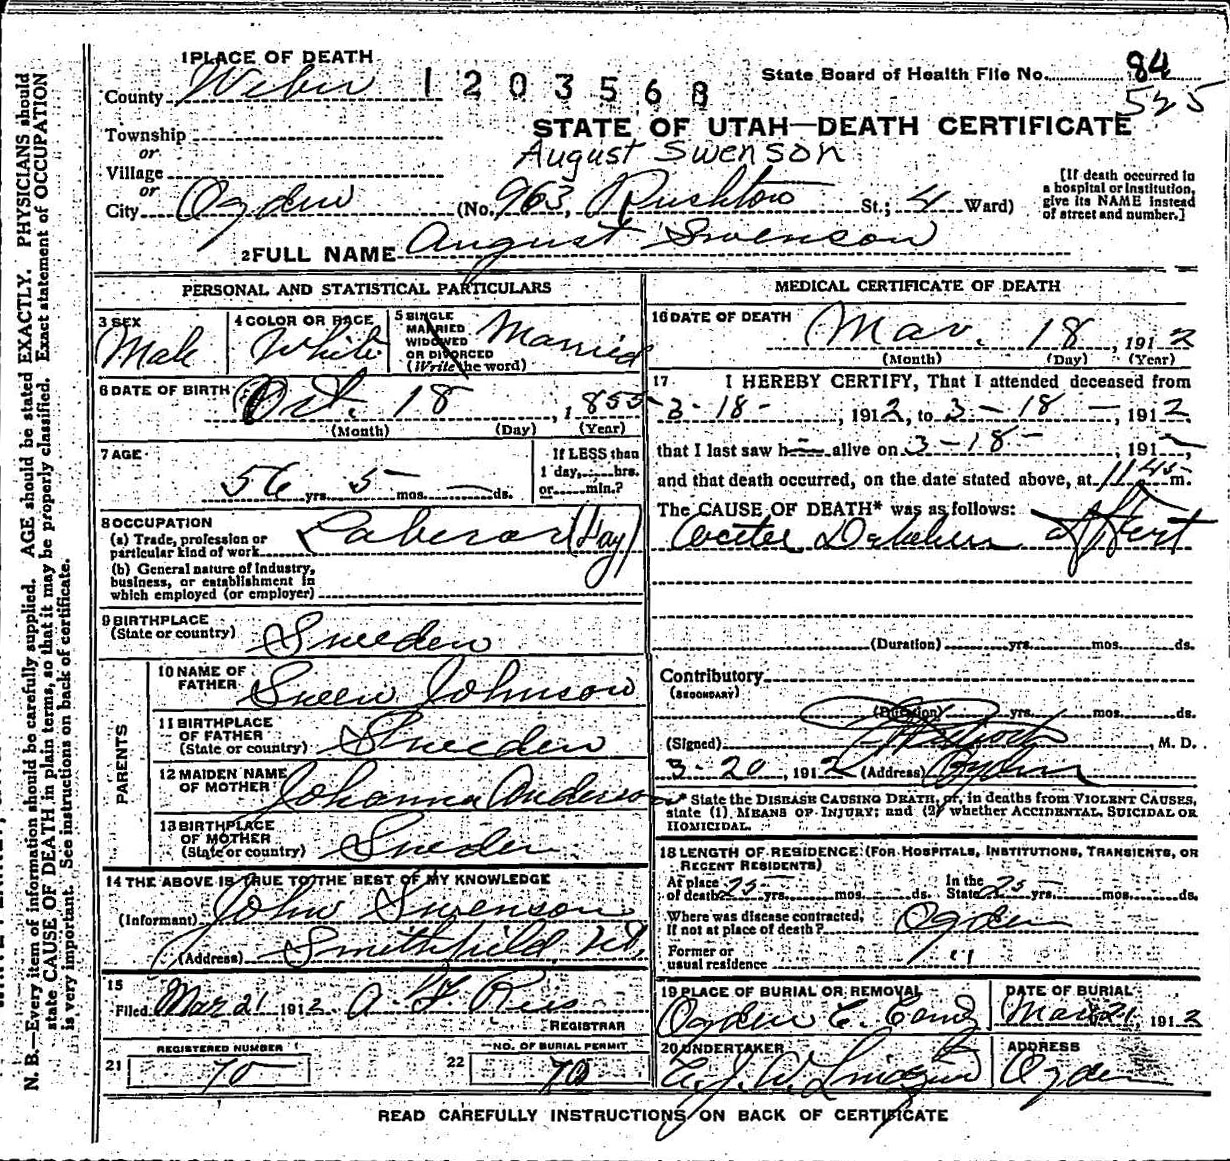 1 PLACE OF DEATH
County Weber
1203568
State Board of Health File No. 84
525
STATE OF UTAH—DEATH CERTIFICATE
August Swenson
Township
or
Village
or
City Ogden (No. 963, Rushton St.; 4 Ward)
[If death occurred in
a hospital or institution,
give its NAME instead
of street and number.]
2 FULL NAME August Swenson
PERSONAL AND STATISTICAL PARTICULARS
3 SEX
Male
4 COLOR OR RACE
White
5 SINGLE
MARRIED
WIDOWED
OR DIVORCED
(Write the word)
Married
6 DATE OF BIRTH
Oct. 18, 1855
(Month) (Day) (Year)
7 AGE
56 yrs. 5 mos. — ds.
If LESS than
1 day, hrs.
or min.?
8 OCCUPATION
(a) Trade, profession or
particular kind of work Laberar (day)
(b) General nature of Industry,
business, or establishment in
which employed (or employer)
9 BIRTHPLACE
(State or country) Sweeden
PARENTS
10 NAME OF
FATHER Sween Johnson
11 BIRTHPLACE
OF FATHER
(State or country) Sweeden
12 MAIDEN NAME
OF MOTHER Johanna Anderson
13 BIRTHPLACE
OF MOTHER
(State or country) Sweden
14 THE ABOVE IS TRUE TO THE BEST OF MY KNOWLEDGE
(Informant) John Swenson
(Address) Smithfield, Ut.
15
Filed Mar 21 1912. A. F.
REGISTRAR
REGISTERED NUMBER
21 70
NO. OF BURIAL PERMIT
22 70
MEDICAL CERTIFICATE OF DEATH
16 DATE OF DEATH
Mar. 18, 1912
(Month) (Day) (Year)
17 I HEREBY CERTIFY, That I attended deceased from
3-18-, 1912, to 3-18-1912,
that I last saw h alive on 3-18-, 191
and that death occurred, on the date stated above, at 11 45 m.
The CAUSE OF DEATH* was as follows:
(Duration) yrs. mos. ds.
Contributory
(SECONDARY)
(Duration) yrs. mos. ds.
(Signed) , M. D.
3-20, 1912 (Address) Ogden
* State the DISEASE CAUSING DEATH, or, in deaths from VIOLENT CAUSES,
state (1) MEANS OF INJURY; and (2) whether ACCIDENTAL, SUICIDAL OR
HOMICIDAL.
18 LENGTH OF RESIDENCE (FOR HOSPITALS, INSTITUTIONS, TRANSIENTS, OR
RECENT RESIDENTS)
At place
of death 25 yrs. mos. ds.
In the
State 25 yrs. mos. ds.
Where was disease contracted,
if not at place of death? Ogden
Former or
usual residence "
19 PLACE OF BURIAL OR REMOVAL
Ogden C.
DATE OF BURIAL
Mar 21, 1912
20 UNDERTAKER
ADDRESS
Ogden
READ CAREFULLY INSTRUCTIONS ON BACK OF CERTIFICATE
N. B.—Every item of information should be carefully supplied. AGE should be stated EXACTLY. PHYSICIANS should
state CAUSE OF DEATH in plain terms, so that it may be properly classified. Exact statement of OCCUPATION
is very important. See instructions on back of certificate.